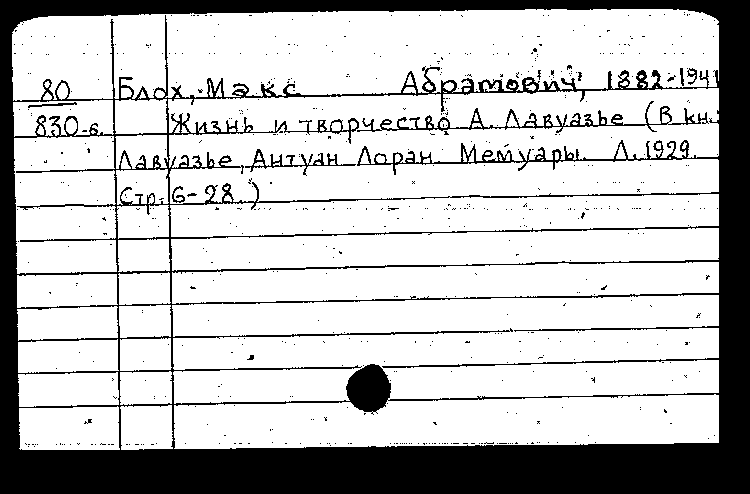 80 Блох, Макс Абрамович, 1882-1941
830-б. Жизнь и творчество А. Лавуазье (В кн.:
Лавуазье, Антуан Лоран. Мемуары. Л. 1929.
Стр. 6-28.)